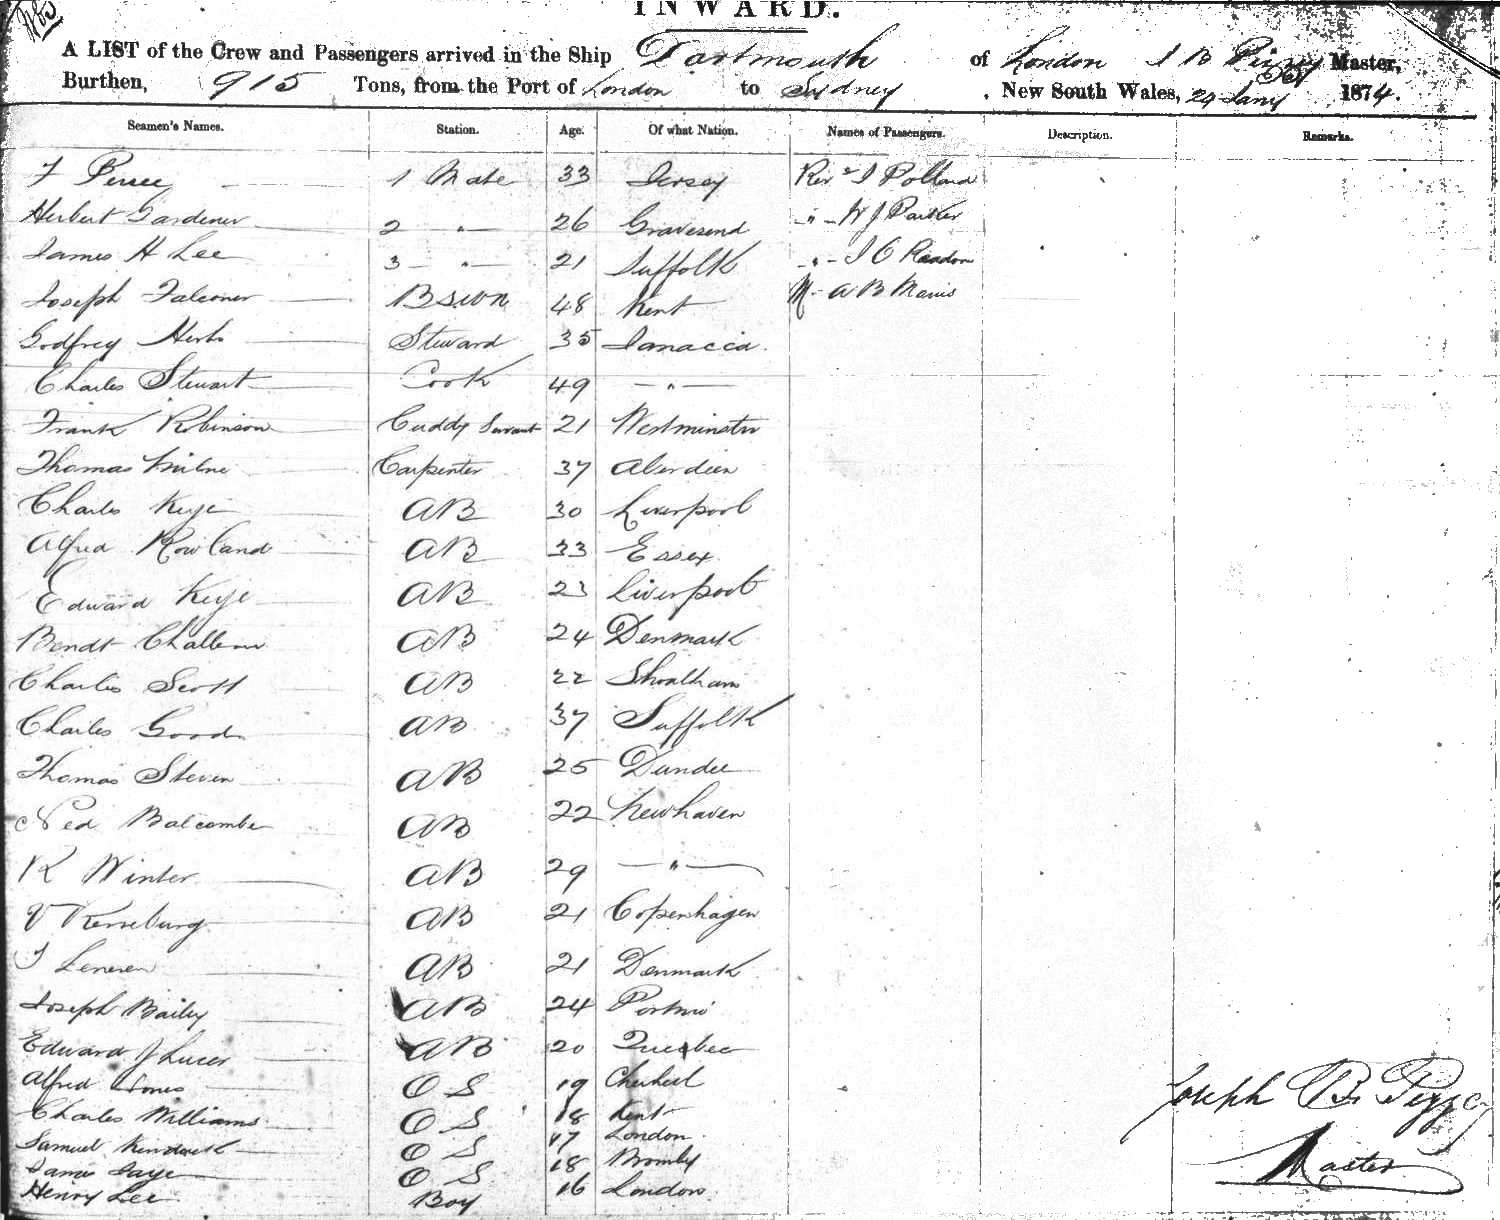 INWARD.
A LIST of the Crew and Passengers arrived in the Ship Dartmouth of London J B Master,
Burthen, 915 Tons, from the Port of London to Sydney, New South Wales, 1874.
Seamen's Names. Station. Age. Of what Nation. Names of Passengers. Description. Remarks.
F 1 Mate 33 Jersey Revd J Pollard
Herbert Gardener 2 " 26 Gravesend " W J Parker
James H Lee 3 " 21 Suffolk " J C
Joseph Falconer Bswn 48 Kent A B
Godfrey Steward 35
Charles Stewart Cook 49 "
Frank Robinson Cuddy Servant 21 Westminster
Thomas Milne Carpenter 37 Aberdeen
Charles Keye AB 30 Liverpool
Alfred Rowland AB 33 Essex
Edward Keye AB 23 Liverpool
Bendt AB 24 Denmark
Charles Scott AB 22
Charles Good AB 37 Suffolk
Thomas Steven AB 25 Dundee
Ned Balcombe AB 22 Newhaven
R Winter AB 29 "
V AB 21 Copenhagen
J AB 21 Denmark
Joseph Bailey AB 24
Edward J AB 20 Quebec
Alfred Jones O S 19
Charles Williams O S 18 Kent
Samuel O S 17 London
James O S 18 Bromly
Henry Lee Boy 16 London
Joseph B.
Master